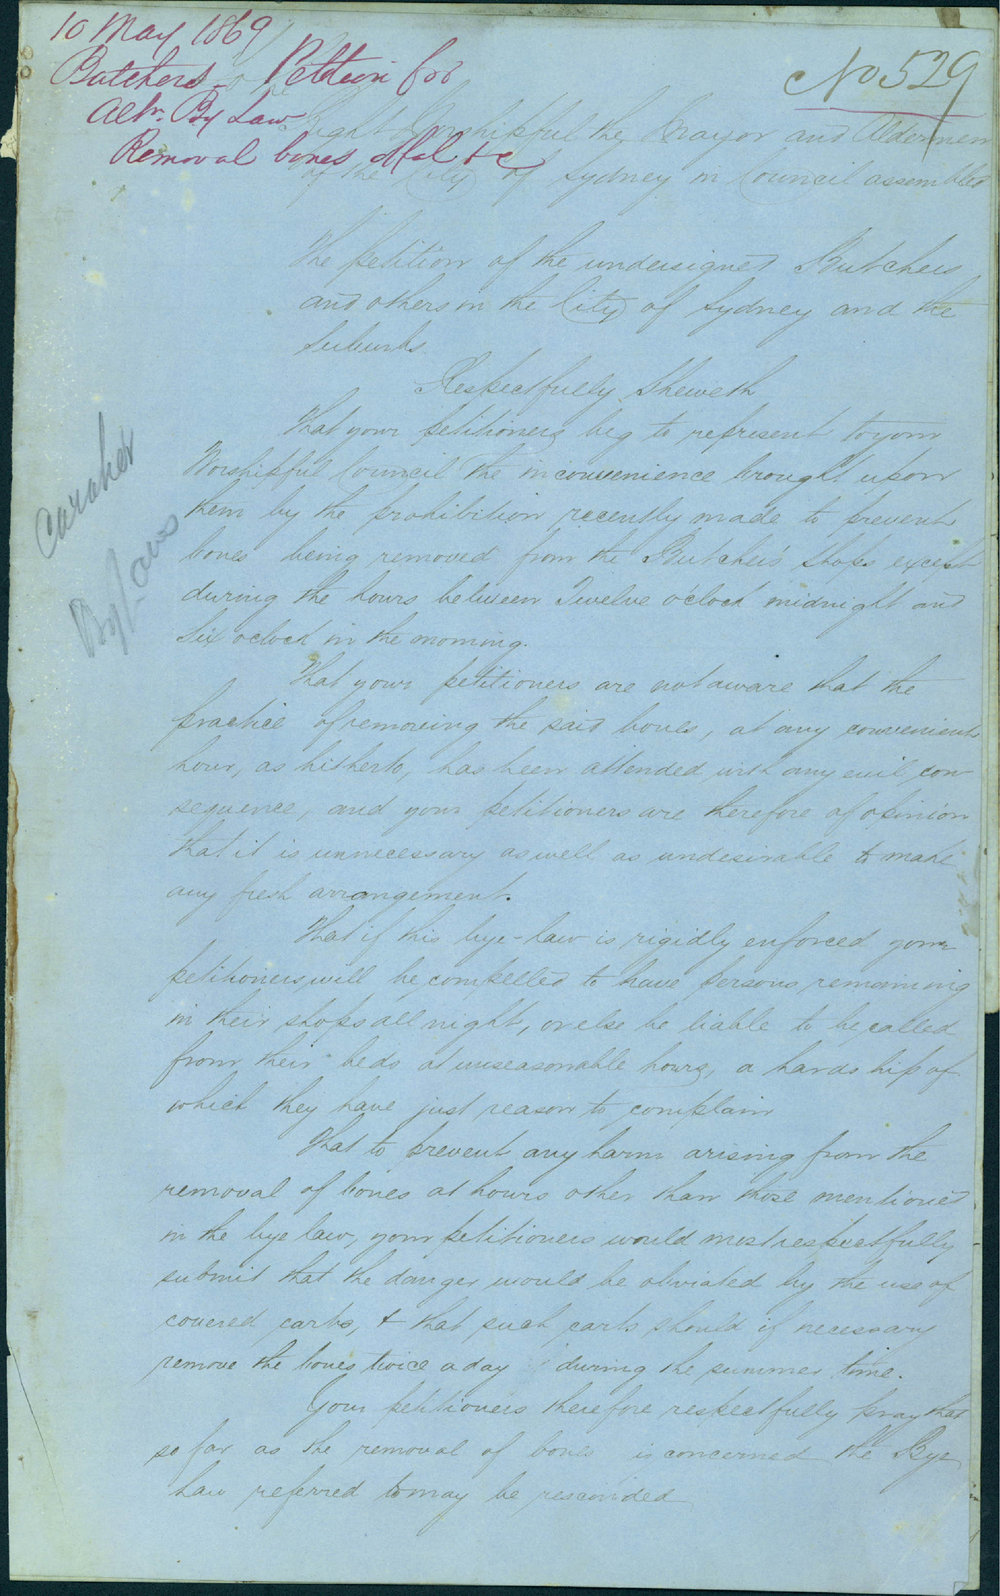 10 May 1869
Butchers - Petition for
Altn. By Law
Removal bones Offal &c
No 529
Right Worshipful the Mayor and Aldermen
of the City of Sydney in Council assembled
The petition of the undersigned Butchers
and others in the City of Sydney and the
Suburbs
Respectfully Sheweth
That your petitioners beg to represent to your
Worshipful Council the inconvenience brought upon
them by the prohibition recently made to prevent
bones being removed from the Butcher's shops except
during the hours between Twelve o'clock midnight and
Six o'clock in the morning.
That your petitioners are not aware that the
practice of removing the said bones, at any convenient
hour, as hitherto, has been attended with any evil con
sequence, and your petitioners are therefore of opinion
that it is unnecessary as well as undesirable to make
any fresh arrangement.
That if this bye-law is rigidly enforced your
petitioners will be compelled to have persons remaining
in their shops all night, or else be liable to be called
from their beds at unseasonable hours, a hardship of
which they have just reason to complain
That to prevent any harm arising from the
removal of bones at hours other than those mentioned
in the bye law, your petitioners would most respectfully
submit that the danger would be obviated by the use of
covered carts, & that such carts should if necessary
remove the bones twice a day during the summer time.
Your petitioners therefore respectfully pray that
so far as the removal of bones is concerned the Bye
Law referred to may be resconded
Caraher
By/-aws